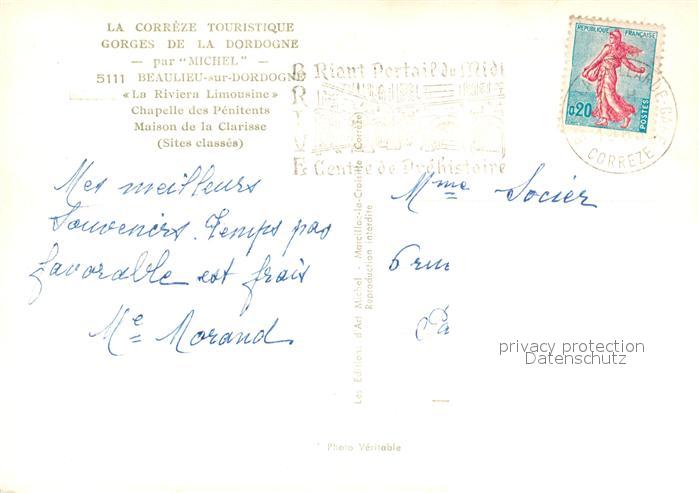 LA CORRÈZE TOURISTIQUE
GORGES DE LA DORDOGNE
— par "MICHEL" —
5111 BEAULIEU-sur-DORDOGNE
«La Riviera Limousine»
Chapelle des Pénitents
Maison de la Clarisse
(Sites classés)
BRIVE
Riant Portail du Midi
Centre de Préhistoire
REPUBLIQUE FRANÇAISE
0,20
POSTES
CORREZE
Mes meilleurs
Souvenirs. Temps pas
favorable est frais
Me Morand
Les Editions d'Art Michel - Marcillac-la-Croisille (Corrèze)
Reproduction interdite
Mme Socier
6 rue
privacy protection
Datenschutz
Photo Véritable